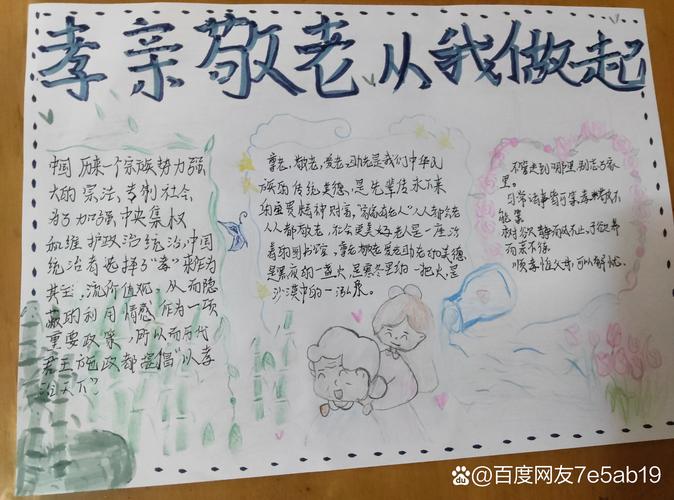 孝亲敬老从我做起
中国历来一个宗族势力强
大的宗法、专制社会,
为了加强中央集权
和维护政治统治,中国
统治者选择了“孝”来作为
其主流价值观。从而隐
蔽的利用情感作为一项
重要政策,所以而历代
君王施政都提倡“以孝
治天下”
孝老,敬老,爱老,助老是我们中华民
族的传统美德,是先辈传承下来
的宝贵精神财富,“家家有老人”人人都会老
人人都敬老,社会更美好,老人是一座
的图书馆,孝老敬老爱老助老的美德
是黑夜的一盏火,是寒冬里的一把火,是
沙漠中的一泓泉。
不管走到哪里,别忘了家
里。
日常诸事皆可
能
树欲静而风不止,子欲养
而亲不待
顺孝惟父母,可以解忧。
@百度网友7e5ab19